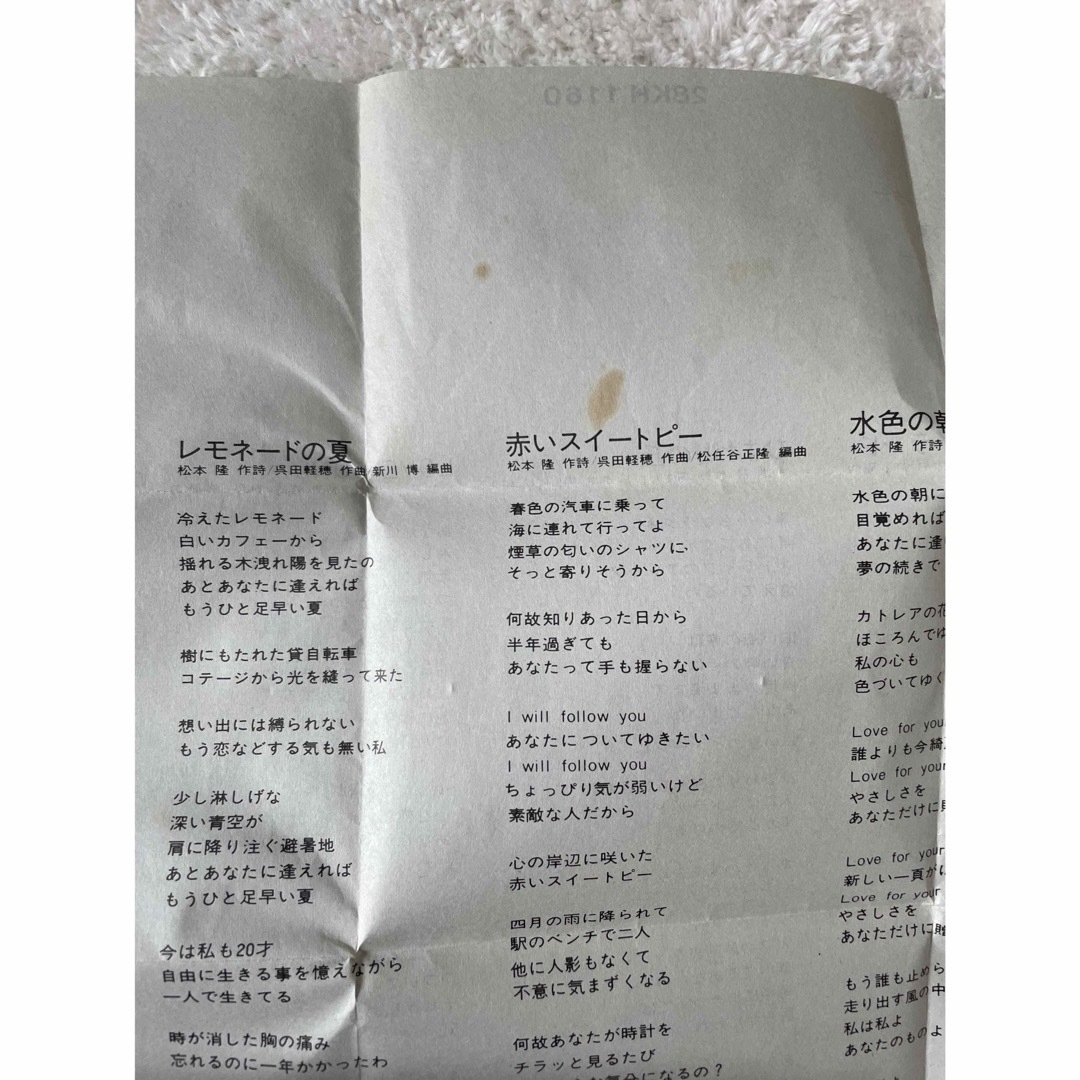 28KH 1160
レモネードの夏
松本 隆 作詩/呉田軽穂 作曲/新川 博 編曲
冷えたレモネード
白いカフェーから
揺れる木洩れ陽を見たの
あとあなたに逢えれば
もうひと足早い夏
樹にもたれた貸自転車
コテージから光を縫って来た
想い出には縛られない
もう恋などする気も無い私
少し淋しげな
深い青空が
肩に降り注ぐ避暑地
あとあなたに逢えれば
もうひと足早い夏
今は私も20才
自由に生きる事を憶えながら
一人で生きてる
時が消した胸の痛み
忘れるのに一年かかったわ
赤いスイートピー
松本 隆 作詩/呉田軽穂 作曲/松任谷正隆 編曲
春色の汽車に乗って
海に連れて行ってよ
煙草の匂いのシャツに
そっと寄りそうから
何故知りあった日から
半年過ぎても
あなたって手も握らない
I will follow you
あなたについてゆきたい
I will follow you
ちょっぴり気が弱いけど
素敵な人だから
心の岸辺に咲いた
赤いスイートピー
四月の雨に降られて
駅のベンチで二人
他に人影もなくて
不意に気まずくなる
何故あなたが時計を
チラッと見るたび
な気分になるの?
水色の
松本 隆 作詩
水色の朝に
目覚めれば
あなたに逢
夢の続きで
カトレアの花
ほころんでゆ
私の心も
色づいてゆく
Love for you
誰よりも今綺
Love for your
やさしさを
あなただけに
Love for your
新しい一頁が
Love for your
やさしさを
あなただけに贈
もう誰も止めら
走り出す風の中
私は私よ
あなたのものよ